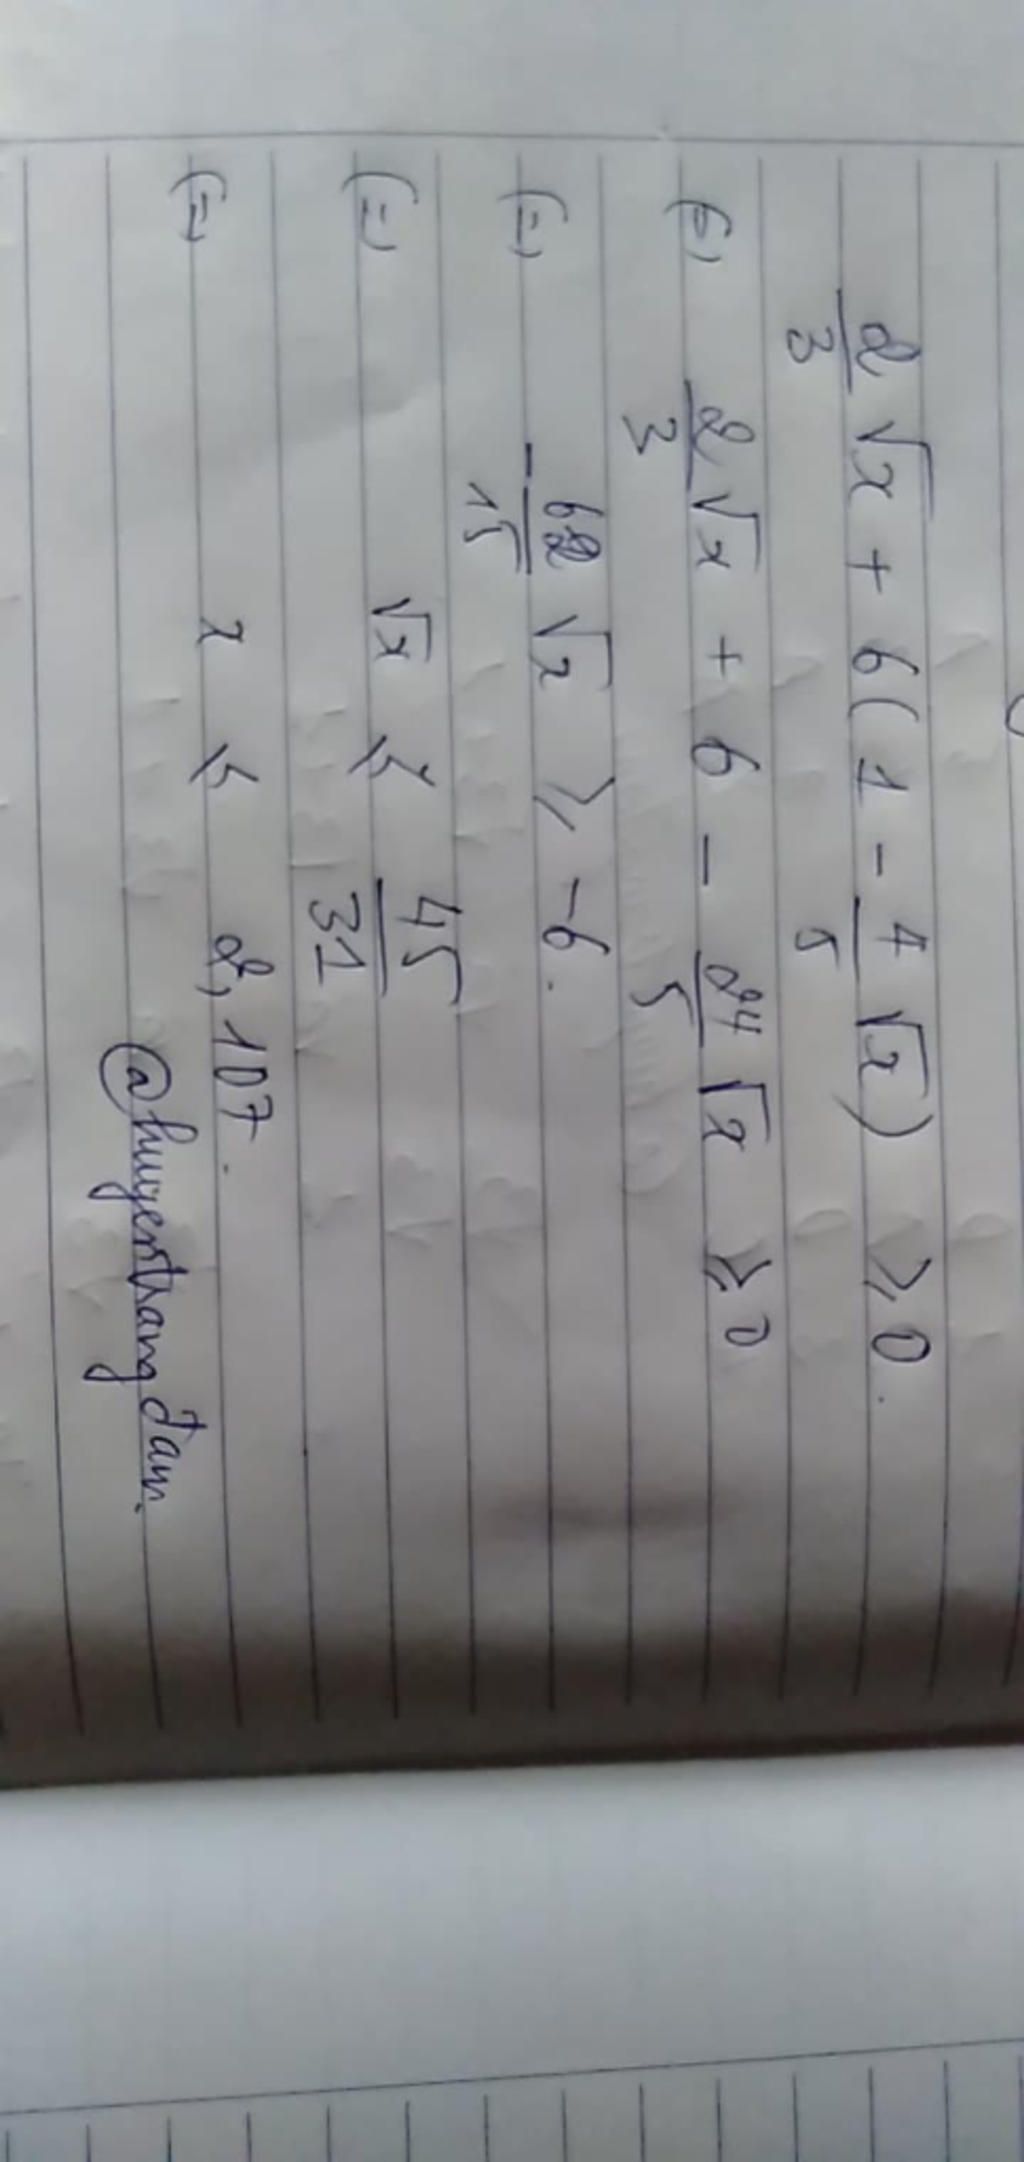 2/3 √x + 6(1 - 4/5 √x) ⩾ 0.
(=) 2/3 √x + 6 - 24/5 √x ⩾ 0
(=) -62/15 √x ⩾ -6.
(=) √x ⩽ 45/31
(=) x ⩽ 2,107.
@huyentrangđam.